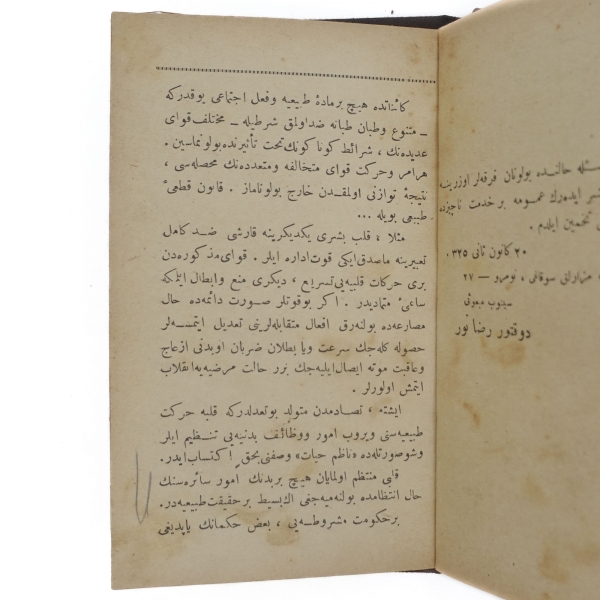 كائناتده هيچ بر مادۀ طبيعيه وفعل اجتماعى يوقدركه
ــ متنوع وطبان طبانه ضد اولمق شرطيله ــ مختلف قواى
عديده‌نك ، شرائط كونا كونك تحت تأثيرنده بولونماسين .
هرامر وحركت قواى متخالفه ومتعدده‌نك محصله‌سى ،
نتيجۀ توازنى اولمقدن خارج بولوناماز . قانون قطعئ
طبيعى بويله ...
مثلا ، قلب بشرى يكديكرينه قارشى ضد كامل
تعبيرينه ماصدق ايكى قوت اداره ايلر . قواى مذكوره‌دن
برى حركات قلبيه‌يى تسريع ، ديكرى منع وابطال ايلكه
ساعئ متماديدر . اكر بوقوتلر صورت دائمه‌ده حال
مصارعه‌ده بولنه‌رق افعال متقابله‌لرينى تعديل ايتمسه‌لر
حصوله كله‌جك سرعت ويا بطلان ضربان اوبدنى ازعاج
وعاقبت موته ايصال ايليه‌جك برر حالت مرضيه‌يه انقلاب
ايتمش اولورلر .
ايشته ، تضادمدن متولد بوتعدلدركه قلبه حركت
طبيعيه‌سنى ويروب امور ووظائف بدنيه‌يى تنظيم ايلر
وشوصورتله‌ده «ناظم حيات» وصفنى بحق اكتساب ايدر.
قلبى منتظم اولمايان هيچ بر بدنك امور سائره‌سنك
حال انتظامده بولنه‌ميه‌جغى اك بسيط بر حقيقت طبيعيه‌در.
بر حكومت مشروطه‌يى ، بعض حكمانك ياپديغى
مسئله حالنده بولونان فرقه‌لر اوزرينه
نشر ايده‌رك عمومه بر خدمت ناچيزده
تخمين ايلدم .
٢٠ كانون ثانى ٣٢٥.
سوقاغى ، نومرو ــ ٢٧
سينوب مبعوثى
دوقتور رضا نور